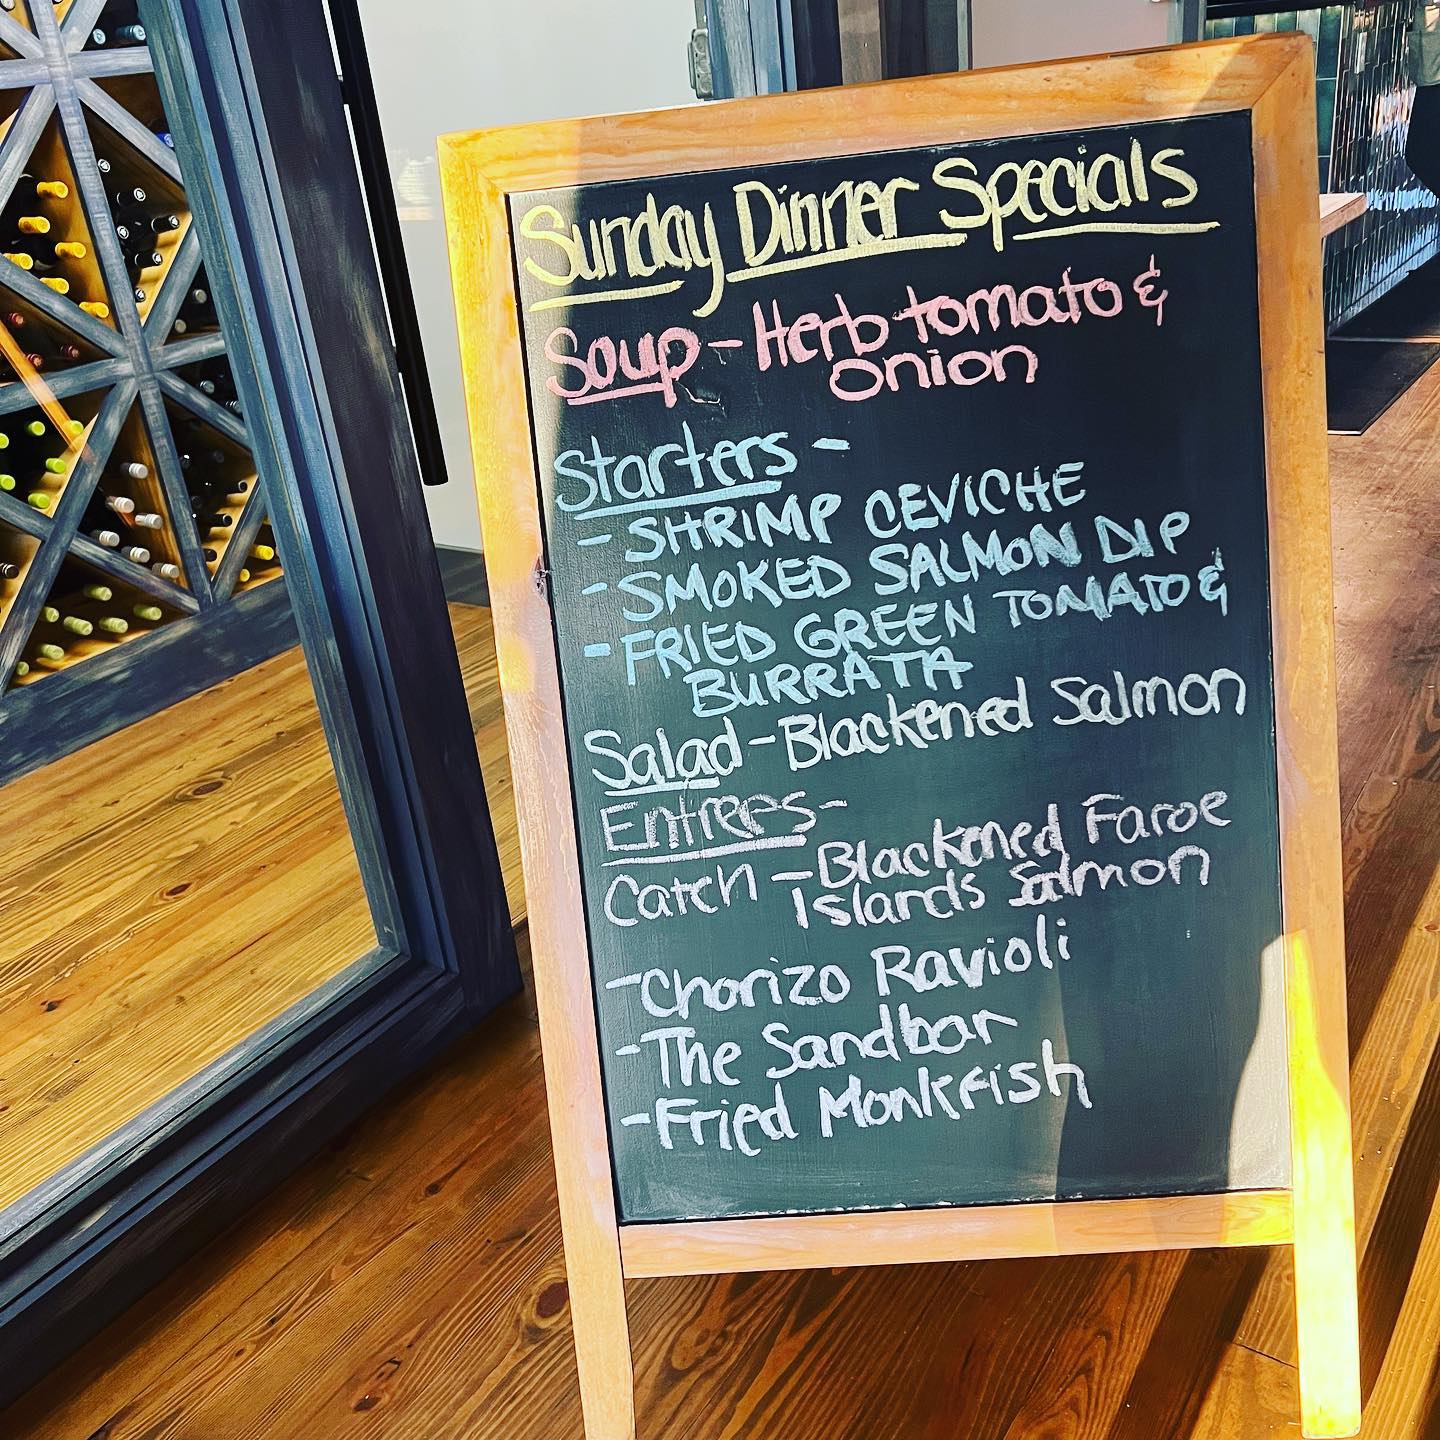 Sunday Dinner Specials
Soup - Herb tomato &
onion
Starters -
- SHRIMP CEVICHE
- SMOKED SALMON DIP
- FRIED GREEN TOMATO &
BURRATA
Salad - Blackened Salmon
Entrees -
Catch - Blackened Faroe
Islands Salmon
- Chorizo Ravioli
- The Sandbar
- Fried Monkfish